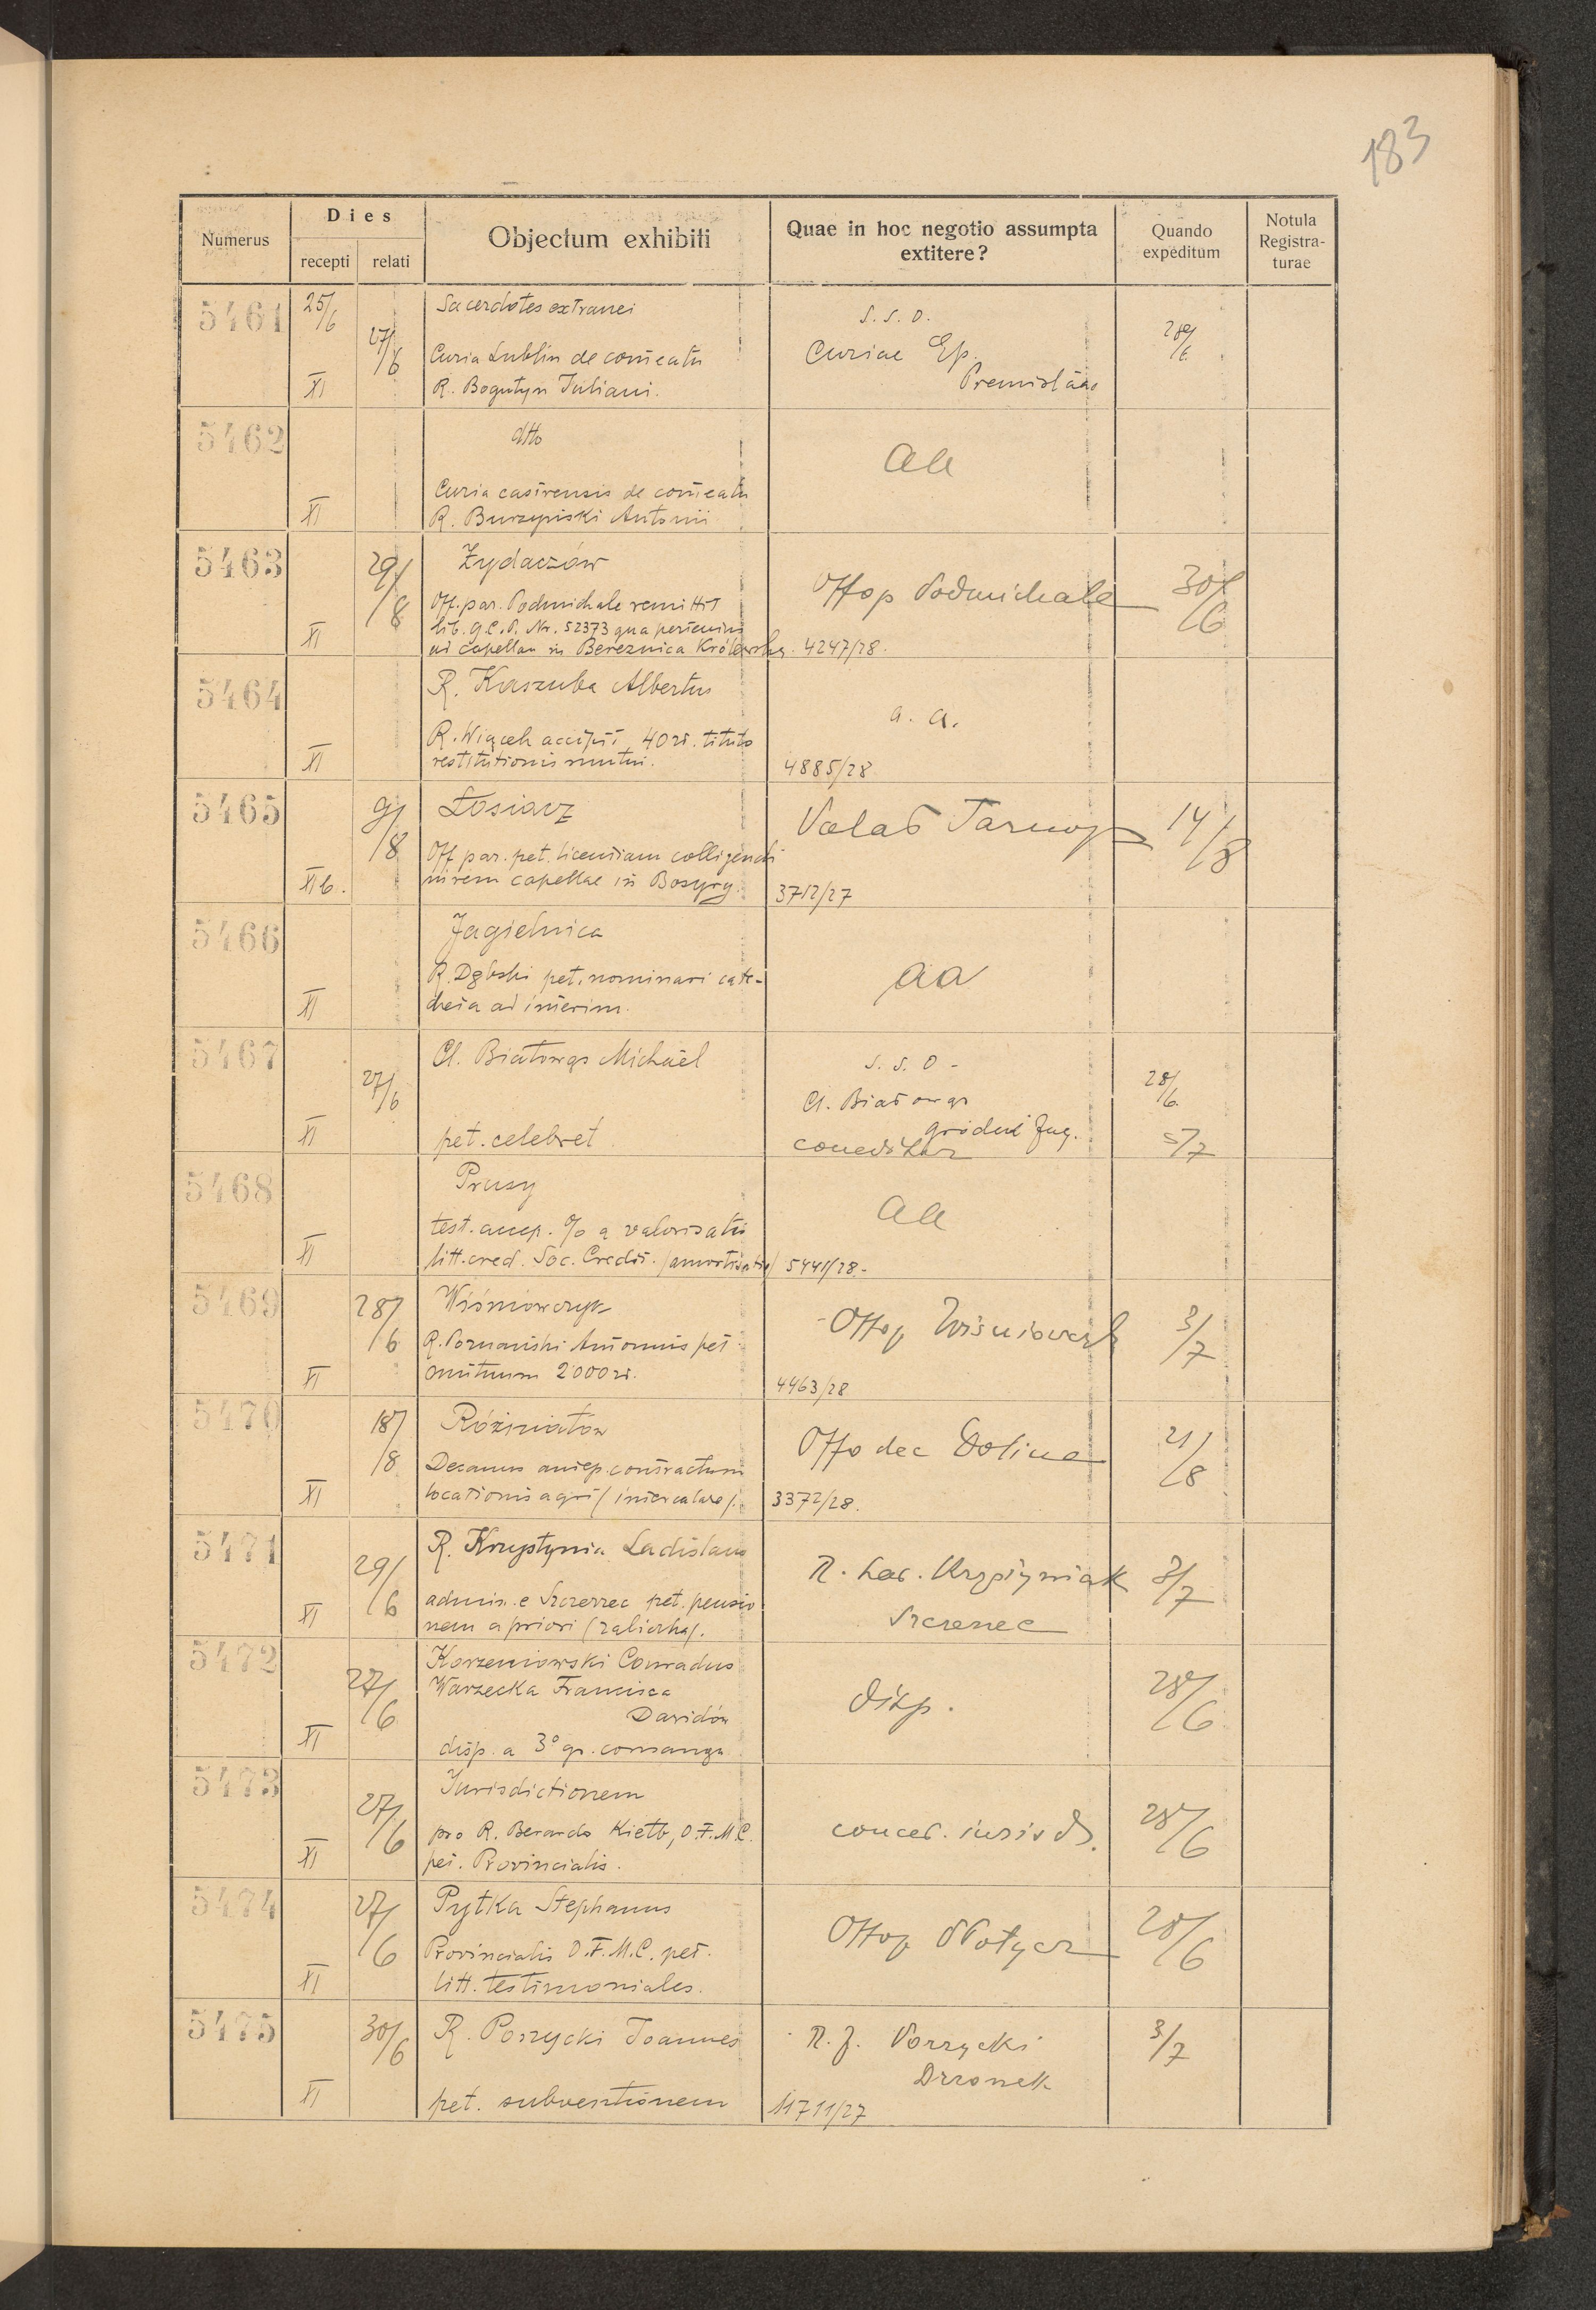 183
Numerus
Dies
recepti relati
Objectum exhibiti
Quae in hoc negotio assumpta
extitere?
Quando
expeditum
Notula
Registra-
turae
5461 25/6 27/6 XI
Sacerdotes extranei
Curia Lublin de com̄eatu
R. Bogutyn Juliani.
s. s. o.
Curiae Ep.
28/6
5462 XI
dtto
Curia castrensis de com̄eatu
R. Burzyński Antonii
aa
5463 29/8 XI
Żydaczów
Off. par. Podmichale remittit
lib. G.C.P. Nr. 52373 qua
ad capellam in Bereznica Królewska. 4247/28.
Offop Podmichale
30/6
5464 XI
R. Kaszuba Albertus
R. Wiącek accipit 40 zł. titulo
restitutionis mutui.
a. a.
4885/28
5465 9/8 XIb.
Łosiacz
Off par. pet. licentiam colligendi
capellae in Bosyry.
Tarnop
3712/27
14/8
5466 XI
Jagielnica
R. Dębski pet. nominari cate-
cheta ad interim.
aa
5467 27/6 XI
Cl. Białowąs Michael
pet. celebret
s. s. o -
Cl. Białowąs
Gródek Jag.
28/6
5/7
5468 XI
Prusy
test. accep. % a valorisatis
litt. cred. Soc. Credit. /amortisatio/ 5441/28.-
aa
5469 28/6 XI
Wiśniowczyk
R. Poznański Antonius pet
mutuum 2000 zł.
Offop Wiśniowczyk
4463/28
3/7
5470 18/8 XI
Rożniatów
Decanus contractum
locationis agri /intercalare/.
Offo dec Dolina
3372/28.
21/8
5471 29/6 XI
R. Krzystynia Ladislaus
admin. e Szczerzec pet. pensio
nem a priori /zaliczka/.
R. Lad. Krzyżyniak
Szczerzec
3/7
5472 27/6 XI
Korzeniowski Conradus
Warzecka Francisca
Davidów
disp. a 3° gr. consangu
disp.
28/6
5473 27/6 XI
Jurisdictionem
pro R. Berardo Kiełb, O.F.M.C.
pet. Provincialis.
conced. iurisd.
28/6
5474 27/6 XI
Pytka Stephanus
Provincialis O.F.M.C. pet.
litt. testimoniales.
Offop
28/6
5475 30/6 XI
R. Porzycki Joannes
pet. subventionem
R. J. Porzycki
11711/27
3/7